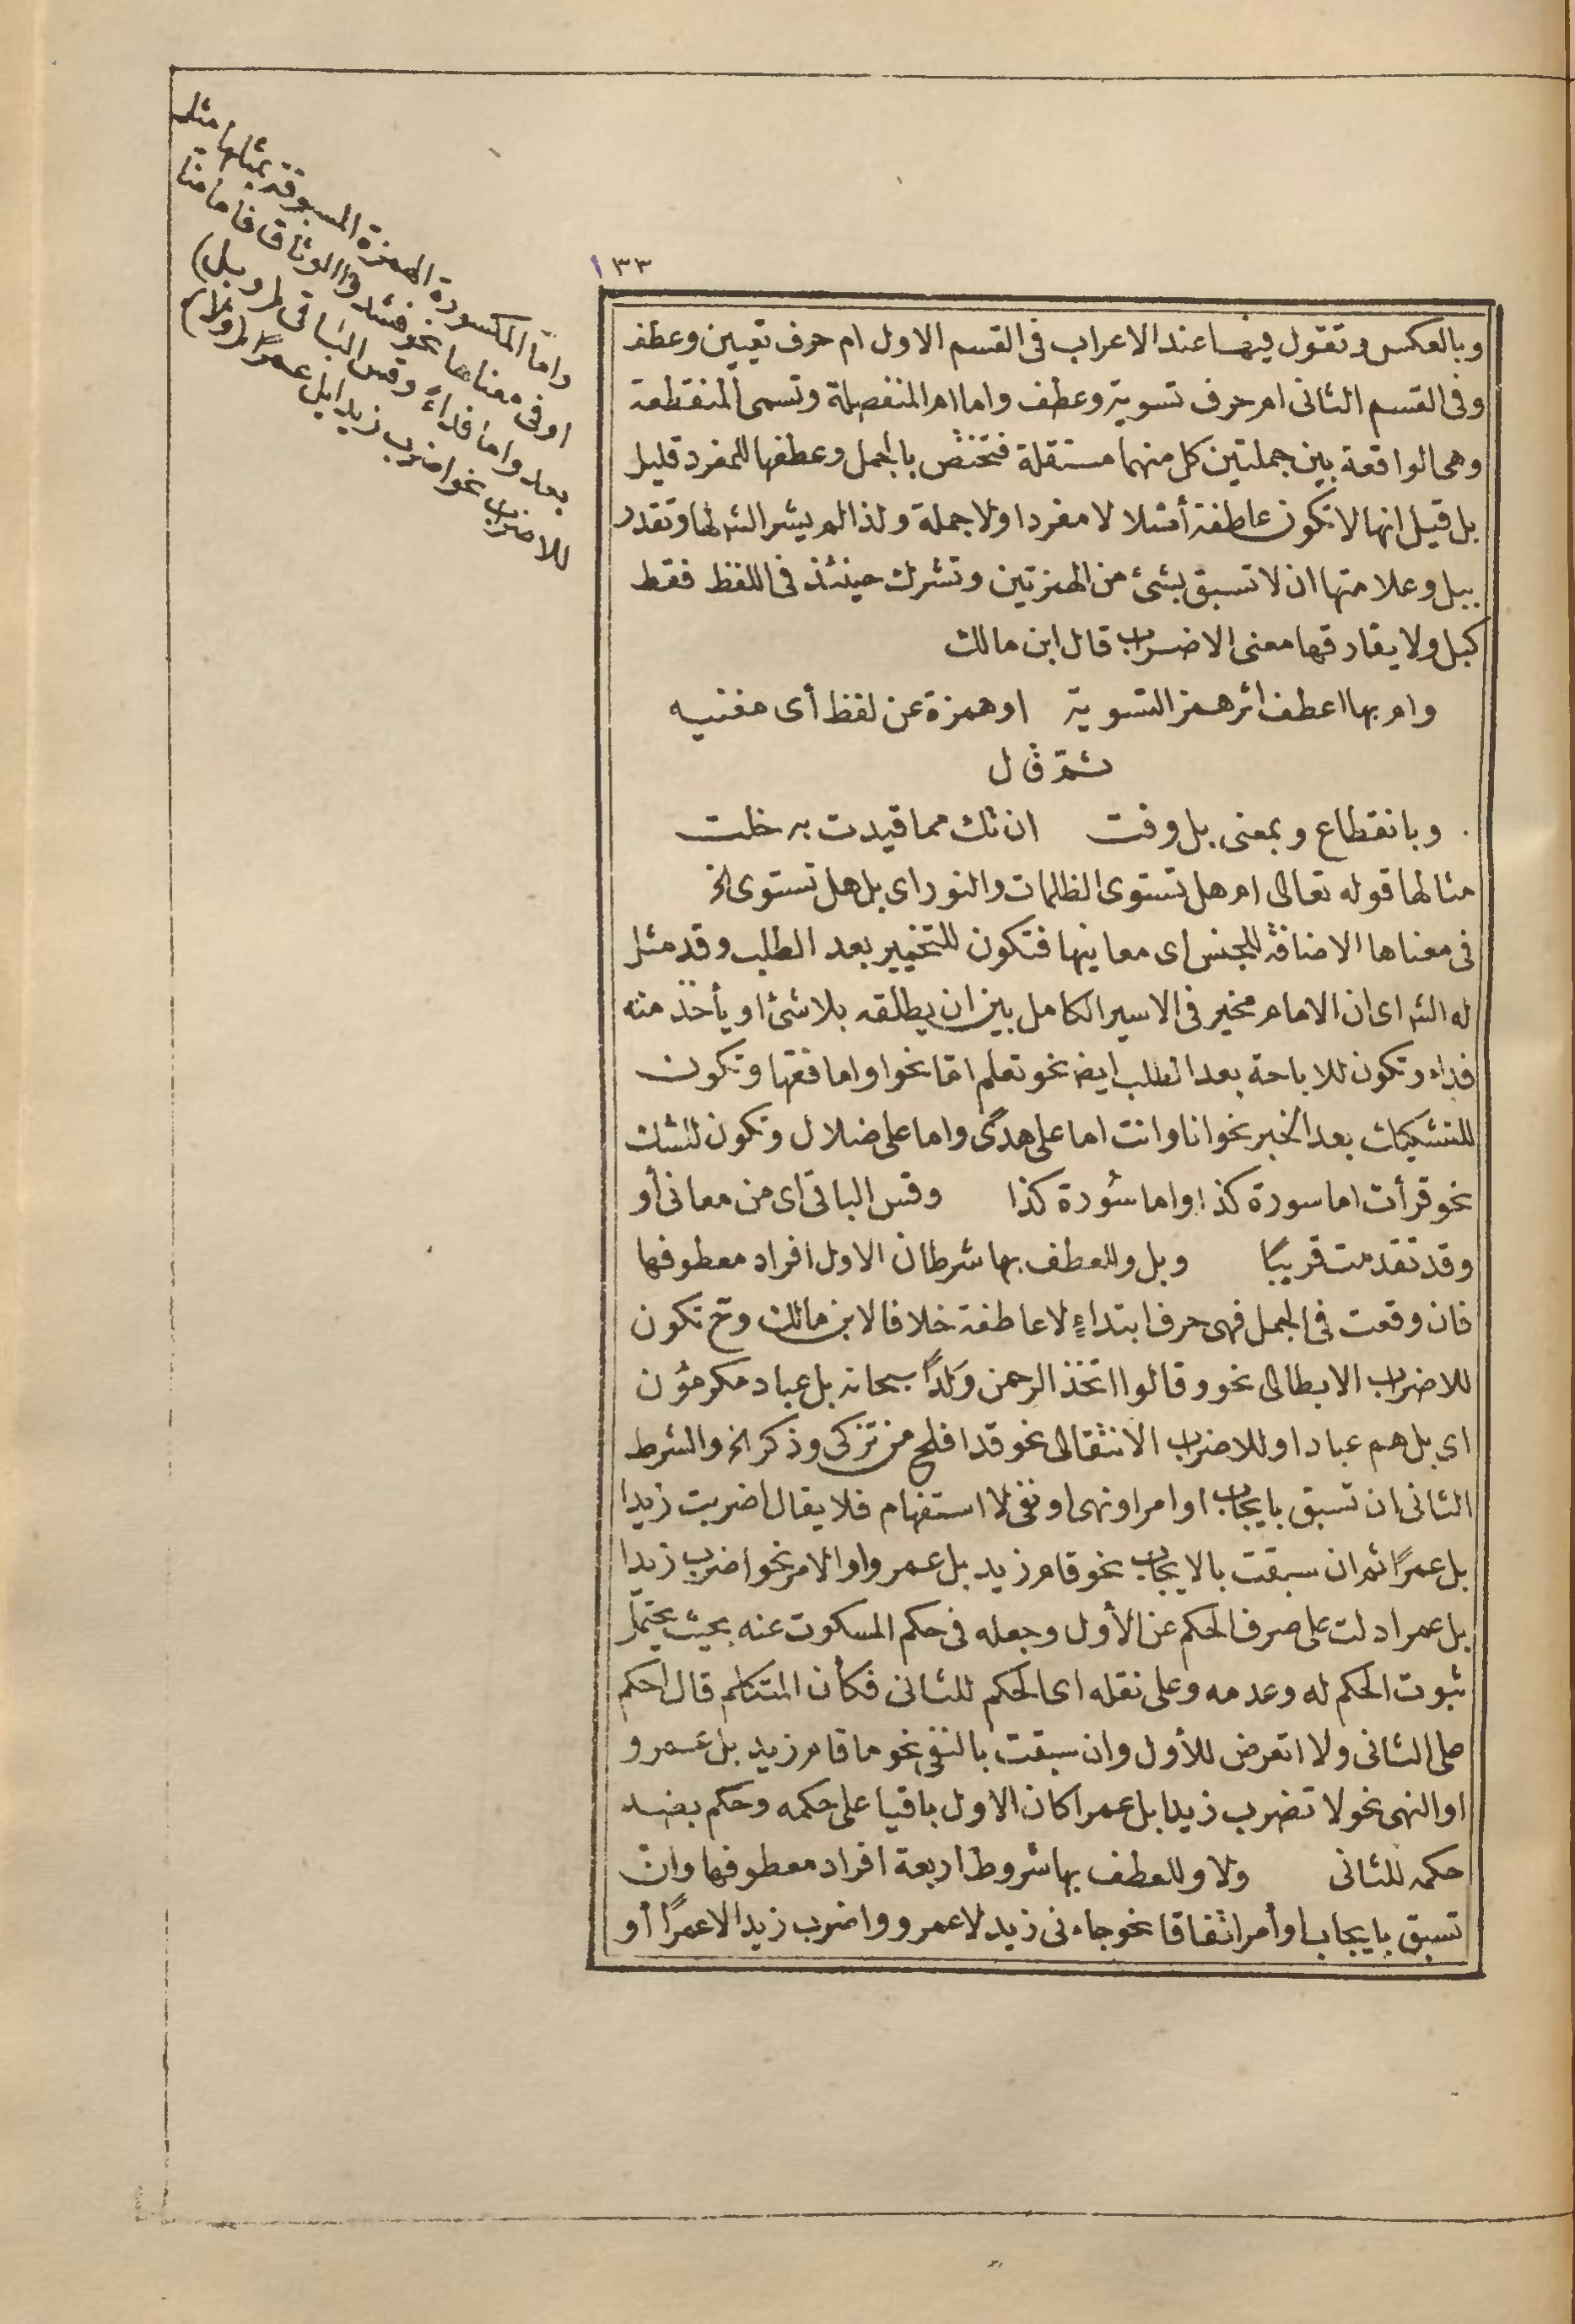 ١٣٣
وبالعكس وتقول فيهما عند الاعراب فى القسم الاول ام حرف تعيين وعطف
وفى القسم الثانى ام حرف تسوية وعطف واما ام المنفصلة وتسمى المنقطعة
وهى الواقعة بين جملتين كل منهما مستقلة فتختص بالجمل وعطفها للمفرد قليل
بل قيل انها لا تكون عاطفة أصلا لا مفردا ولا جملة ولذا لم يشر الش لها وتقدر
ببل وعلامتها ان لا تسبق بشئ من الهمزتين وتشرك حينئذ فى اللفظ فقط
كبل ولا يفارقها معنى الاضراب قال ابن مالك
وام بها اعطف اثر همز التسوية او همزة عن لفظ أى مغنيه
ثم قال
وبانقطاع وبمعنى بل وفت ان تك مما قيدت به خلت
مثالها قوله تعالى ام هل تستوى الظلمات والنور اى بل هل تستوى الخ
فى معناها الاضافة للجنس اى معاينها فتكون للتخيير بعد الطلب وقد مثل
له الش اى ان الامام مخير فى الاسير الكامل بين ان يطلقه بلا شئ او يأخذ منه
فداء وتكون للاباحة بعد الطلب ايضا نحو تعلم اما نحوا واما فقها وتكون
للتشكيك بعد الخبر نحو انا وانت اما على هدًى واما على ضلال وتكون للشك
نحو قرأت اما سورة كذا واما سورة كذا وقس الباقى اى من معانى أو
وقد تقدمت قريبًا وبل وللعطف بها شرطان الاول افراد معطوفها
فان وقعت فى الجمل فهى حرف ابتداءٍ لا عاطفة خلافا لابن مالك وح تكون
للاضراب الابطالى نحو وقالوا اتخذ الرحمن ولدًا سبحانه بل عباد مكرمون
اى بل هم عباد او للاضراب الانتقالى نحو قد افلح من تزكى وذكر الخ والشرط
الثانى ان تسبق بايجاب او امر او نهى او نفى لا استفهام فلا يقال اضربت زيدا
بل عمرًا ثم ان سبقت بالايجاب نحو قام زيد بل عمرو او الامر نحو اضرب زيدا
بل عمرا دلت على صرف الحكم عن الأول وجعله فى حكم المسكوت عنه بحيث يحتمل
ثبوت الحكم له وعدمه وعلى نقله اى الحكم للثانى فكأن المتكلم قال احكم
على الثانى ولا اتعرض للأول وان سبقت بالنفى نحو ما قام زيد بل عمرو
او النهى نحو لا تضرب زيدا بل عمرا كان الاول باقيا على حكمه وحكم بضد
حكمه للثانى ولا وللعطف بها شروط اربعة افراد معطوفها وان
تسبق بايجاب او أمر اتفاقا نحو جاءنى زيد لا عمرو واضرب زيدا لا عمرًا أو
واما المكسورة الهمزة المسبوقة بمثلها مثل
او فى معناها نحو فشدوا الوثاق فاما منا
بعد واما فداءً وقس الباقى (وبل)
للاضراب نحو اضرب زيدا بل عمرًا (ولا)